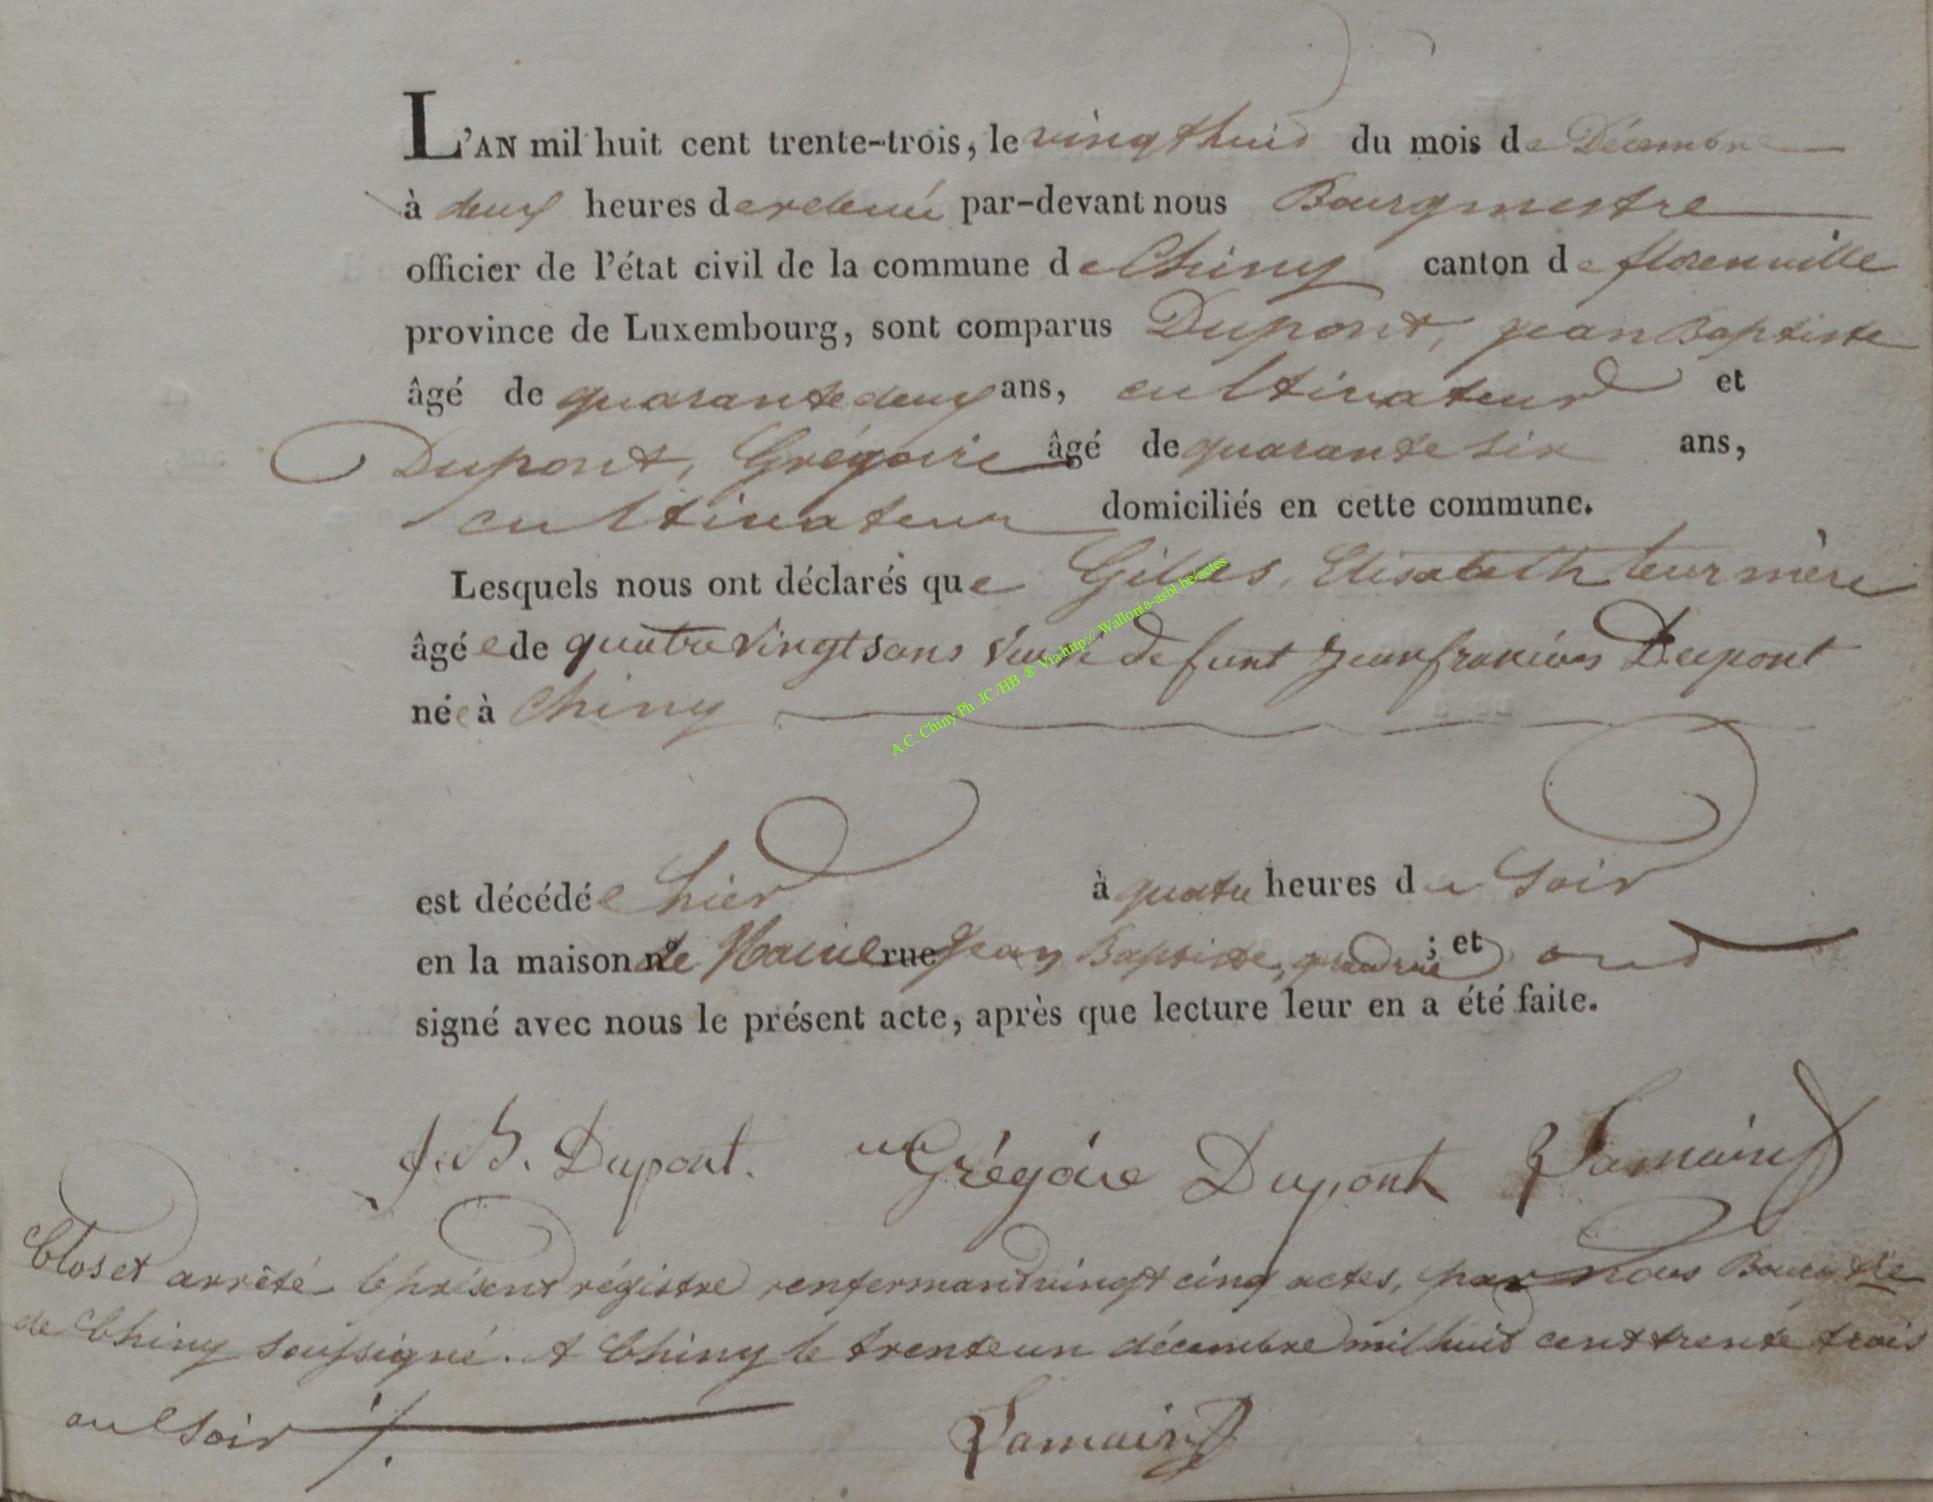 L'AN mil huit cent trente-trois, le vingt huid du mois de Décembre
à deux heures de relevé par-devant nous Bourgmestre
officier de l'état civil de la commune de Chiny canton de florenville
province de Luxembourg, sont comparus Dupont, jean Baptiste
âgé de quarante deux ans, cultivateur et
Dupont, Grégoire âgé de quarante six ans,
cultivateur domiciliés en cette commune.
Lesquels nous ont déclarés que Gilles, Elisabeth leur mère
âgée de quatre vingts ans veuve de funt jean francois Dupont
née à Chiny
A.C. Chiny Ph. JC/HB ® Via http://Wallonia-asbl.be/actes
est décédée hier à quatre heures du Soir
en la maison de rue Jean Baptiste, grand rue ; et ont
signé avec nous le présent acte, après que lecture leur en a été faite.
J.B. Dupont. Grégoire Dupont
Clos et arrêté le présent régistre renfermand vingt cinq actes, par Nous Bourgtre
de Chiny soussigné. A Chiny le trente un décembre mil huit cent trente trois
au Soir